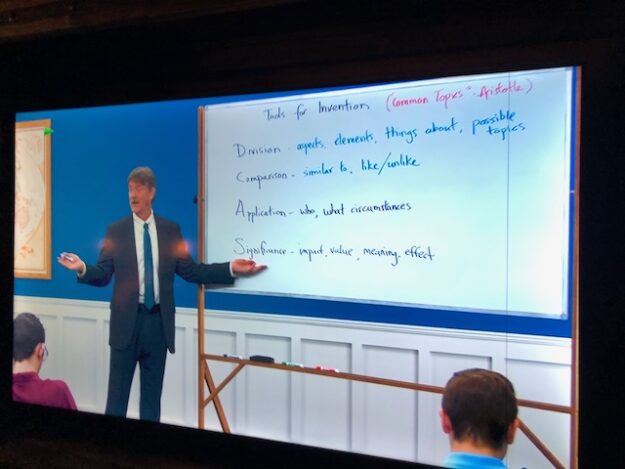 Tools for Invention (Common Topics" - Aristotle)
Division - aspects, elements, things about, possible topics
Comparison - similar to, like/unlike
Application - who, what circumstances
Significance - impact, value, meaning, effect